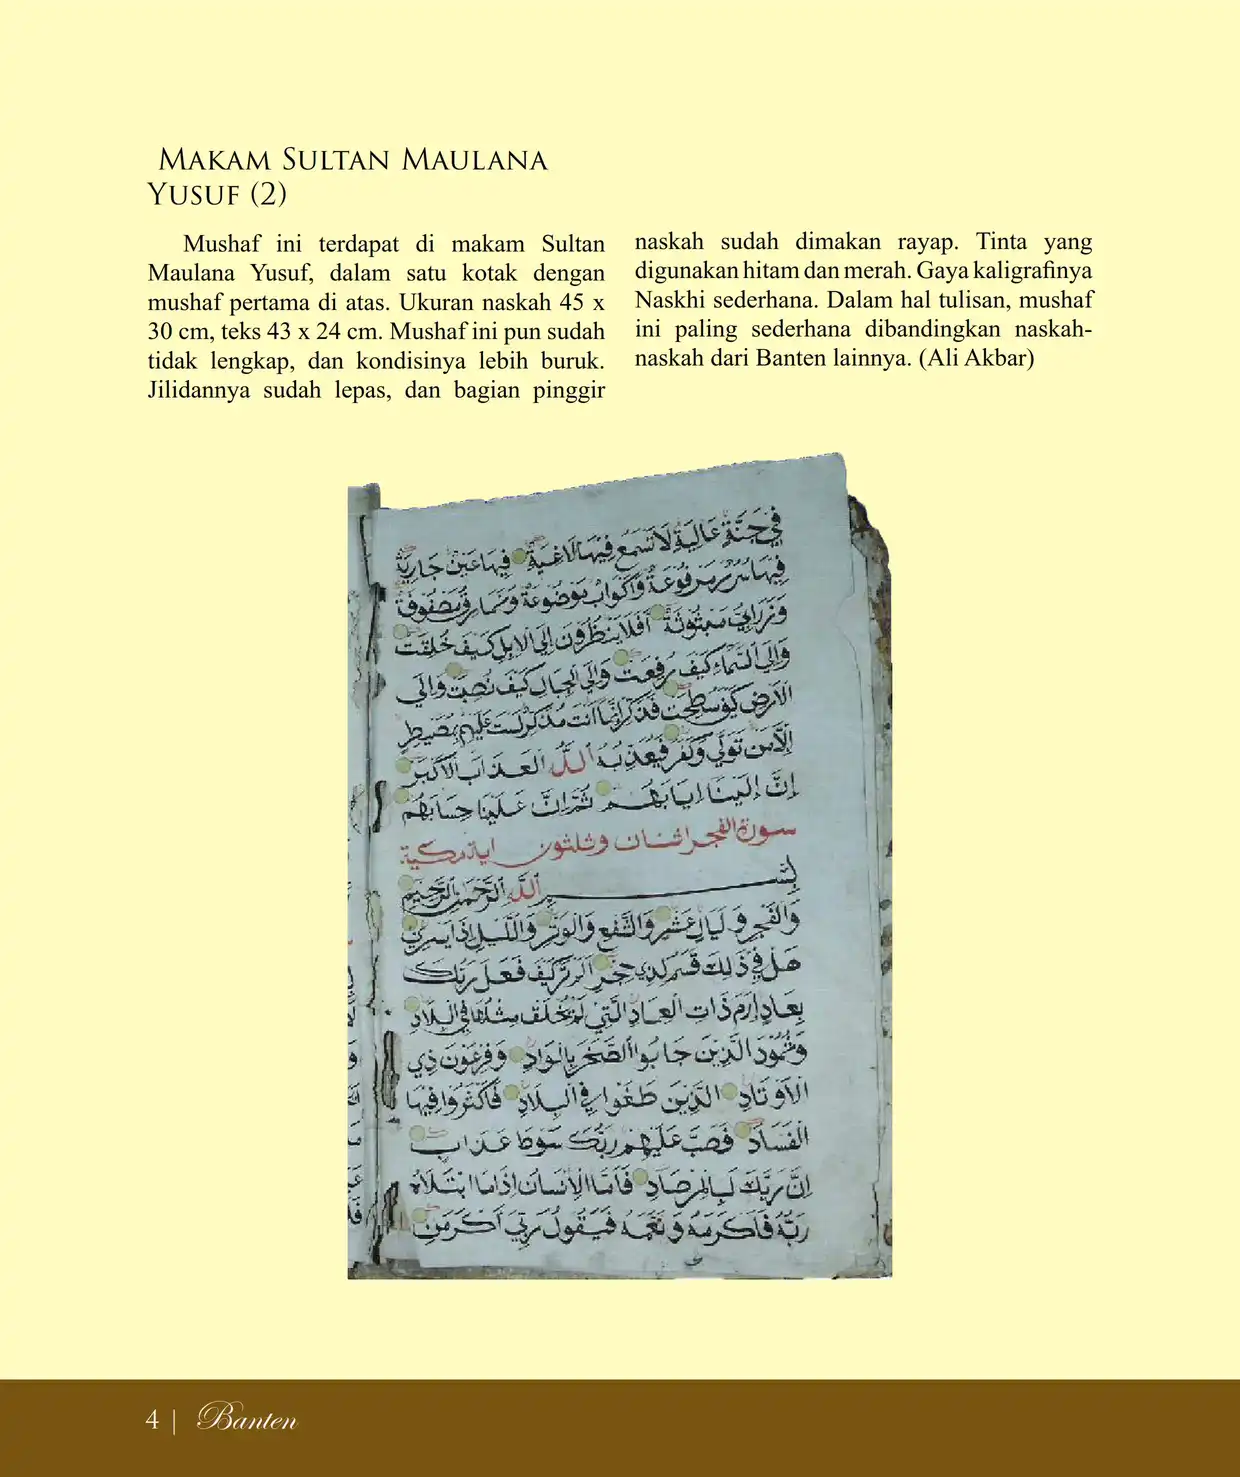 Makam Sultan Maulana
Yusuf (2)
Mushaf ini terdapat di makam Sultan
Maulana Yusuf, dalam satu kotak dengan
mushaf pertama di atas. Ukuran naskah 45 x
30 cm, teks 43 x 24 cm. Mushaf ini pun sudah
tidak lengkap, dan kondisinya lebih buruk.
Jilidannya sudah lepas, dan bagian pinggir
naskah sudah dimakan rayap. Tinta yang
digunakan hitam dan merah. Gaya kaligrafinya
Naskhi sederhana. Dalam hal tulisan, mushaf
ini paling sederhana dibandingkan naskah-
naskah dari Banten lainnya. (Ali Akbar)
في جَنَّةٍ عَالِيَةٍ لَا تَسْمَعُ فِيهَا لَاغِيَةً فِيهَا عَيْنٌ جَارِيَةٌ
فِيهَا سُرُرٌ مَرْفُوعَةٌ وَأَكْوَابٌ مَوْضُوعَةٌ وَنَمَارِقُ مَصْفُوفَةٌ
وَزَرَابِيُّ مَبْثُوثَةٌ أَفَلَا يَنْظُرُونَ إِلَى الْإِبِلِ كَيْفَ خُلِقَتْ
وَإِلَى السَّمَاءِ كَيْفَ رُفِعَتْ وَإِلَى الْجِبَالِ كَيْفَ نُصِبَتْ وَإِلَى
الْأَرْضِ كَيْفَ سُطِحَتْ فَذَكِّرْ إِنَّمَا أَنْتَ مُذَكِّرٌ لَسْتَ عَلَيْهِمْ بِمُصَيْطِرٍ
إِلَّا مَنْ تَوَلَّى وَكَفَرَ فَيُعَذِّبُهُ اللَّهُ الْعَذَابَ الْأَكْبَرَ
إِنَّ إِلَيْنَا إِيَابَهُمْ ثُمَّ إِنَّ عَلَيْنَا حِسَابَهُمْ
سورة الفجر اثنان وثلثون اية مكية
بِسْمِ اللَّهِ الرَّحْمَنِ الرَّحِيمِ
وَالْفَجْرِ وَلَيَالٍ عَشْرٍ وَالشَّفْعِ وَالْوَتْرِ وَاللَّيْلِ إِذَا يَسْرِ
هَلْ فِي ذَلِكَ قَسَمٌ لِذِي حِجْرٍ أَلَمْ تَرَ كَيْفَ فَعَلَ رَبُّكَ
بِعَادٍ إِرَمَ ذَاتِ الْعِمَادِ الَّتِي لَمْ يُخْلَقْ مِثْلُهَا فِي الْبِلَادِ
وَثَمُودَ الَّذِينَ جَابُوا الصَّخْرَ بِالْوَادِ وَفِرْعَوْنَ ذِي
الْأَوْتَادِ الَّذِينَ طَغَوْا فِي الْبِلَادِ فَأَكْثَرُوا فِيهَا
الْفَسَادَ فَصَبَّ عَلَيْهِمْ رَبُّكَ سَوْطَ عَذَابٍ
إِنَّ رَبَّكَ لَبِالْمِرْصَادِ فَأَمَّا الْإِنْسَانُ إِذَا مَا ابْتَلَاهُ
رَبُّهُ فَأَكْرَمَهُ وَنَعَّمَهُ فَيَقُولُ رَبِّي أَكْرَمَنِ
4 | Banten